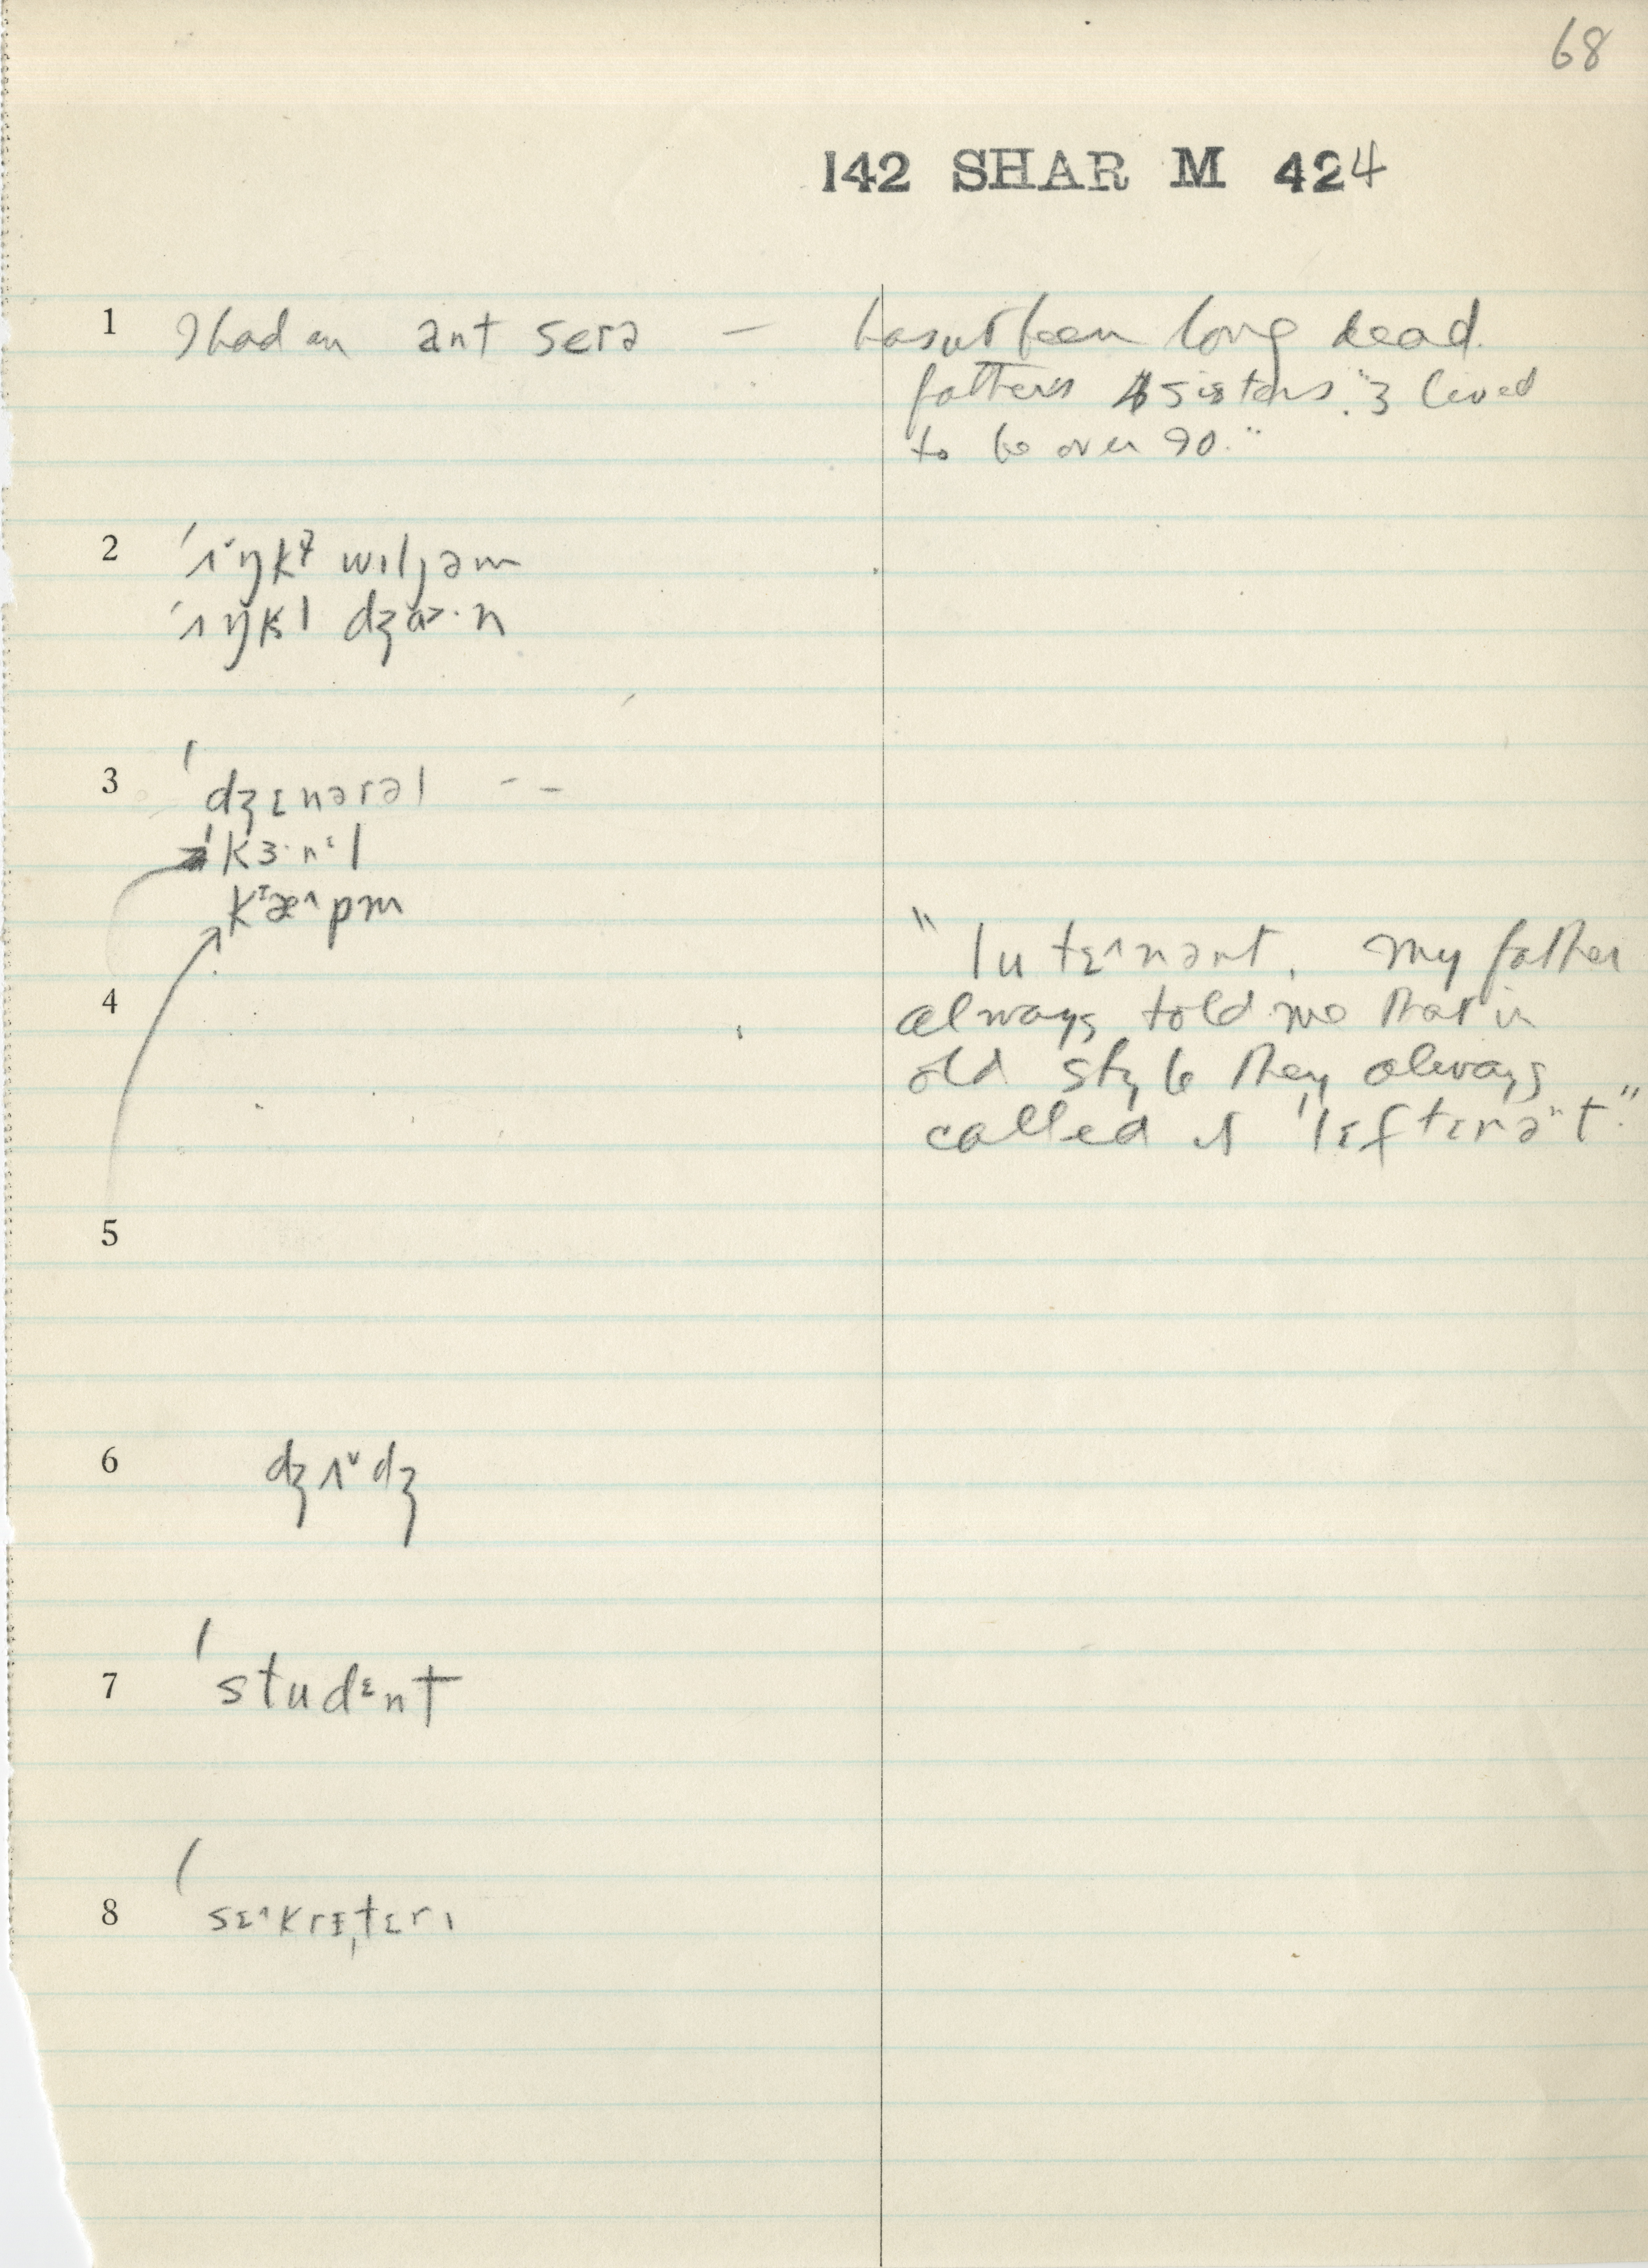 68
142 SHAR M 424
1 I had an ant serə — hasn't been long dead.
father's sisters. "3 lived
to be over 90."
2 ˈʌ˅ŋkɫ wɪljəm
ˈʌŋkl dʒɑ>·n
3 ˈdʒɛnərəl - -
ˈkɜ·nᵋl
kᴵæ^pm
4 "lutɛ^nənt. My father
always told me that in
old style they always
called it ˈlɛftɛnəⁿt."
5
6 dʒʌ˅dʒ
7 ˈstudᵋnt
8 ˈsɛ^krɪˌtɛrɪ